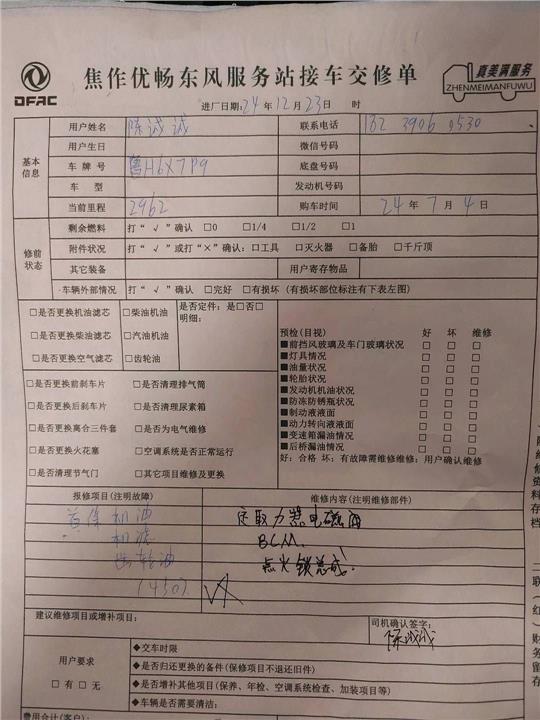 DFAC
焦作优畅东风服务站接车交修单
真美满服务
ZHENMEIMANFUWU
进厂日期:24年12月23日 时
基本信息
用户姓名 陈诚诚 联系电话
用户生日 微信号码
车牌号 底盘号码
车型 发动机号码
当前里程 2962 购车时间 24年7月4日
修前状态
剩余燃料 打“√”确认 □0 □1/4 □1/2 □1
附件状况 打“√”或打“×”确认:□工具 □灭火器 □备胎 □千斤顶
其它装备 用户寄存物品
车辆外部情况 打“√”确认 □完好 □有损坏(有损坏部位标注有下表左图)
□是否更换机油滤芯 □柴油机油 是否定件:是□否□
明细:
□是否更换柴油滤芯 □汽油机油
□是否更换空气滤芯 □齿轮油
□是否更换前刹车片 □是否清理排气筒
□是否更换后刹车片 □是否清理尿素箱
□是否更换离合三件套 □是否为电气维修
□是否更换火花塞 □空调系统是否正常运行
□是否清理节气门 □其它项目维修及更换
预检(目视) 好 坏 维修
■前挡风玻璃及车门玻璃状况 □ □ □
■灯具情况 □ □ □
■油量状况 □ □ □
■轮胎状况 □ □ □
■发动机机油状况 □ □ □
■防冻防锈瓶状况 □ □ □
■制动液液面 □ □ □
■动力转向液液面 □ □ □
■变速箱漏油情况 □ □ □
■后桥漏油情况 □ □ □
好:合格 坏:有故障需维修维修:用户确认维修
报修项目(注明故障) 维修内容(注明维修部件)
首保机油 定取力器电磁阀
机滤 BCM、
齿轮油 点火锁总成!
建议维修项目或增补项目:
司机确认签字:
陈诚诚
用户要求
□有□无
◆交车时限
◆是否归还更换的备件(保修项目不退还旧件)
◆是否增补其他项目(保养、年检、空调系统检查、加装项目等)
◆车辆是否需要清洁:
费用合计(客户):